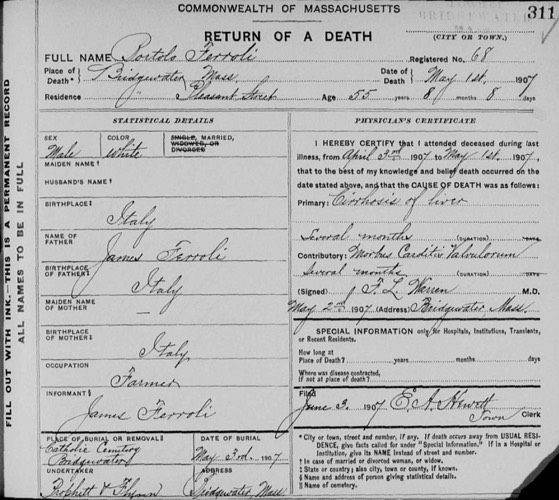 COMMONWEALTH OF MASSACHUSETTS
311
RETURN OF A DEATH
(CITY OR TOWN.)
FULL NAME Bortolo Ferroli
Registered No. 68
Place of Death* Bridgewater Mass
Date of Death May 1st, 1907
Residence " Pleasant Street Age 55 years 8 months 8 days
STATISTICAL DETAILS
SEX
Male
COLOR
White
SINGLE, MARRIED, WIDOWED, OR DIVORCED
MAIDEN NAME†
HUSBAND'S NAME†
BIRTHPLACE‡
Italy
NAME OF FATHER
James Ferroli
BIRTHPLACE OF FATHER‡
Italy
MAIDEN NAME OF MOTHER
—
BIRTHPLACE OF MOTHER‡
Italy
OCCUPATION
Farmer
INFORMANT§
James Ferroli
PLACE OF BURIAL OR REMOVAL‖
Catholic Cemetery
Bridgewater
DATE OF BURIAL
May 3rd. 1907
UNDERTAKER
Prophett & Flynn
ADDRESS
Bridgewater Mass.
PHYSICIAN'S CERTIFICATE
I HEREBY CERTIFY that I attended deceased during last
illness, from April 3rd 1907 to May 1st 1907,
that to the best of my knowledge and belief death occurred on the
date stated above, and that the CAUSE OF DEATH was as follows:
Primary: Cirrhosis of liver
Several months (DURATION) DAYS
Contributory: Morbus Carditis Valvulorum
several months (DURATION) DAYS
(Signed) F. L. Warren M.D.
May 2nd 1907 (Address) Bridgewater, Mass.
SPECIAL INFORMATION only for Hospitals, Institutions, Transients,
or Recent Residents.
How long at
Place of Death? years months days
Where was disease contracted,
if not at place of death?
Filed
June 3. 1907 E. A. Hewett
Town Clerk
* City or town, street and number, if any. If death occurs away from USUAL RESI-
DENCE, give facts called for under "Special Information." If in a Hospital or
Institution, give its NAME instead of street and number.
† In case of married or divorced woman, or widow.
‡ State or country; also city, town or county, if known.
§ Name and address of person giving statistical details.
‖ Name of cemetery.
FILL OUT WITH INK.—THIS IS A PERMANENT RECORD
ALL NAMES TO BE IN FULL